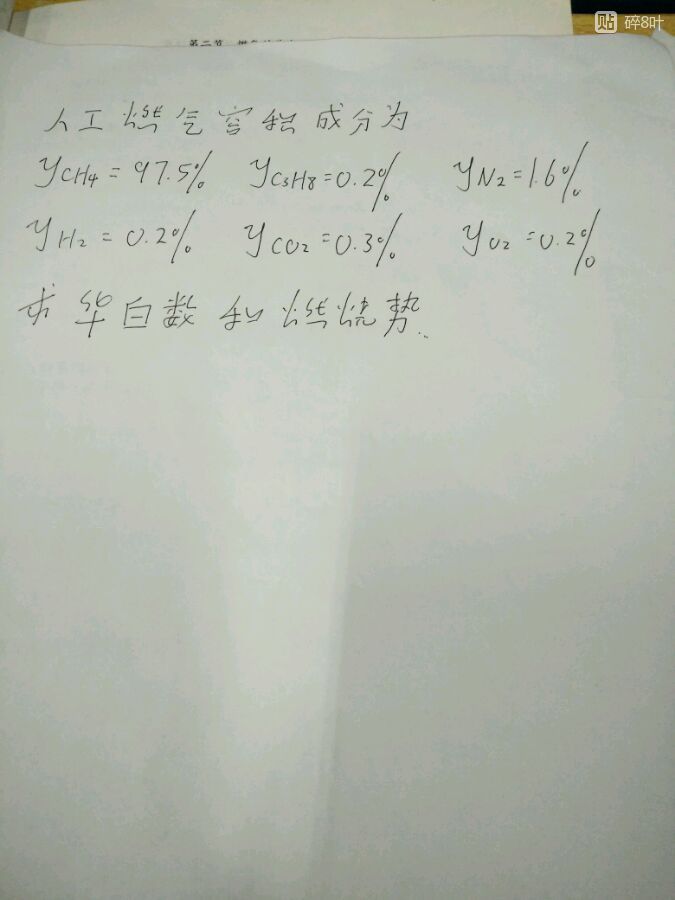 贴 碎8叶
第二节
人工燃气容积成分为
yCH4=97.5% yC3H8=0.2% yN2=1.6%
yH2=0.2% yCO2=0.3% yO2=0.2%
求华白数和燃烧势.